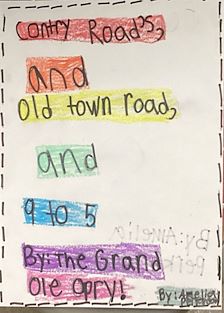 Contry Road's,
and
Old town road,
and
9 to 5
By: The Grand
Ole Opry!
By: Amelia
By: Amelia